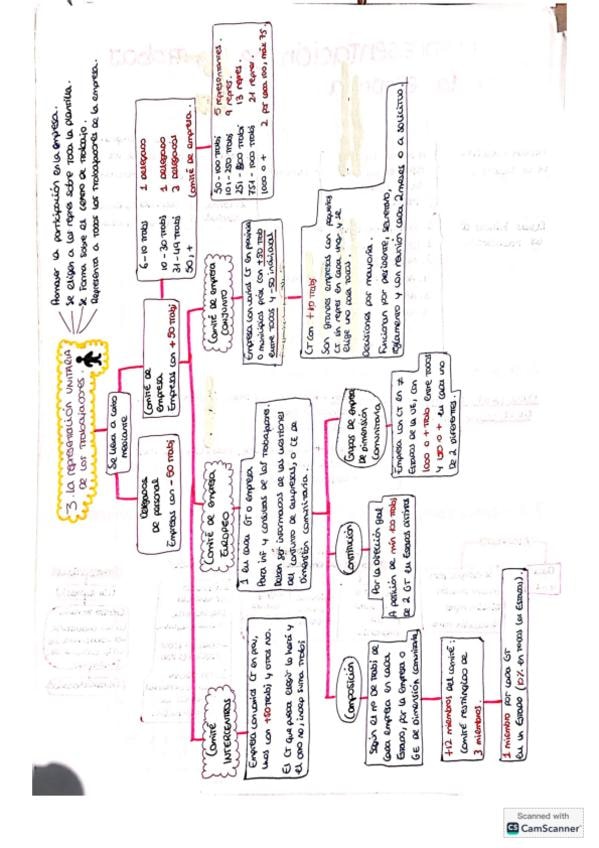 3. La representación unitaria
de los trabajadores.
Promover la participación en la empresa.
Se eligen a los repres sobre toda la plantilla.
Se forma sobre el centro de trabajo.
Representa a todos los trabajadores de la empresa.
Se lleva a cabo
mediante
Delegados
de personal
Empresas con - 50 trabj
Comité de
empresa
Empresas con + 50 trabj
6 - 10 trabj 1 delegado
10 - 30 trabj 1 delegado
31 - 49 trabj 3 delegados
50, + Comité de empresa.
50 - 100 trabj 5 representantes.
101 - 250 trabj 9 repres.
251 - 500 trabj 13 repres.
751 - 1000 trabj 21 repres.
1000 o + 2 por cada 1000, máx 75.
Comité
INTERCENTROS
Empresa con varios CT en prov,
unos con +50 trabj y otros no.
El CT que pueda elegir lo hará y
el otro no, indep suma trabj
Comité de empresa
EUROPEO
1 en cada GT o empresa
Para inf y consultas de los trabajadores.
Deben ser informados de las cuestiones
del conjunto de empresas, o CE de
dimensión comunitaria.
Comité de empresa
CONJUNTO
Empresa con varios CT en provincia
o municipios próx con +50 trab
entre todos y -50 individual
CT con +10 trabj
Son grandes empresas con pequeños
CT sin repres en cada uno y se
elige uno para todos.
Decisiones por mayoría.
Funcionan por presidente, secretario,
reglamento y con reunión cada 2 meses o a solicitud.
Composición
Según el nº de trabj de
cada empresa en cada
Estado, por la empresa o
GE de dimensión comunitaria.
+12 miembros del comité:
comité restringido de
3 miembros.
1 miembro por cada GT
en un Estado (10% en todos los Estados).
Constitución
Por la dirección gral
A petición de mín 100 trabj
de 2 GT en Estados distintos
Grupos de empresa
de dimensión
comunitaria
Empresa con CT en ≠
Estados de la UE, con
1000 o + trab entre todos
y 150 o + en cada uno
de 2 diferentes.
Scanned with
CS CamScanner